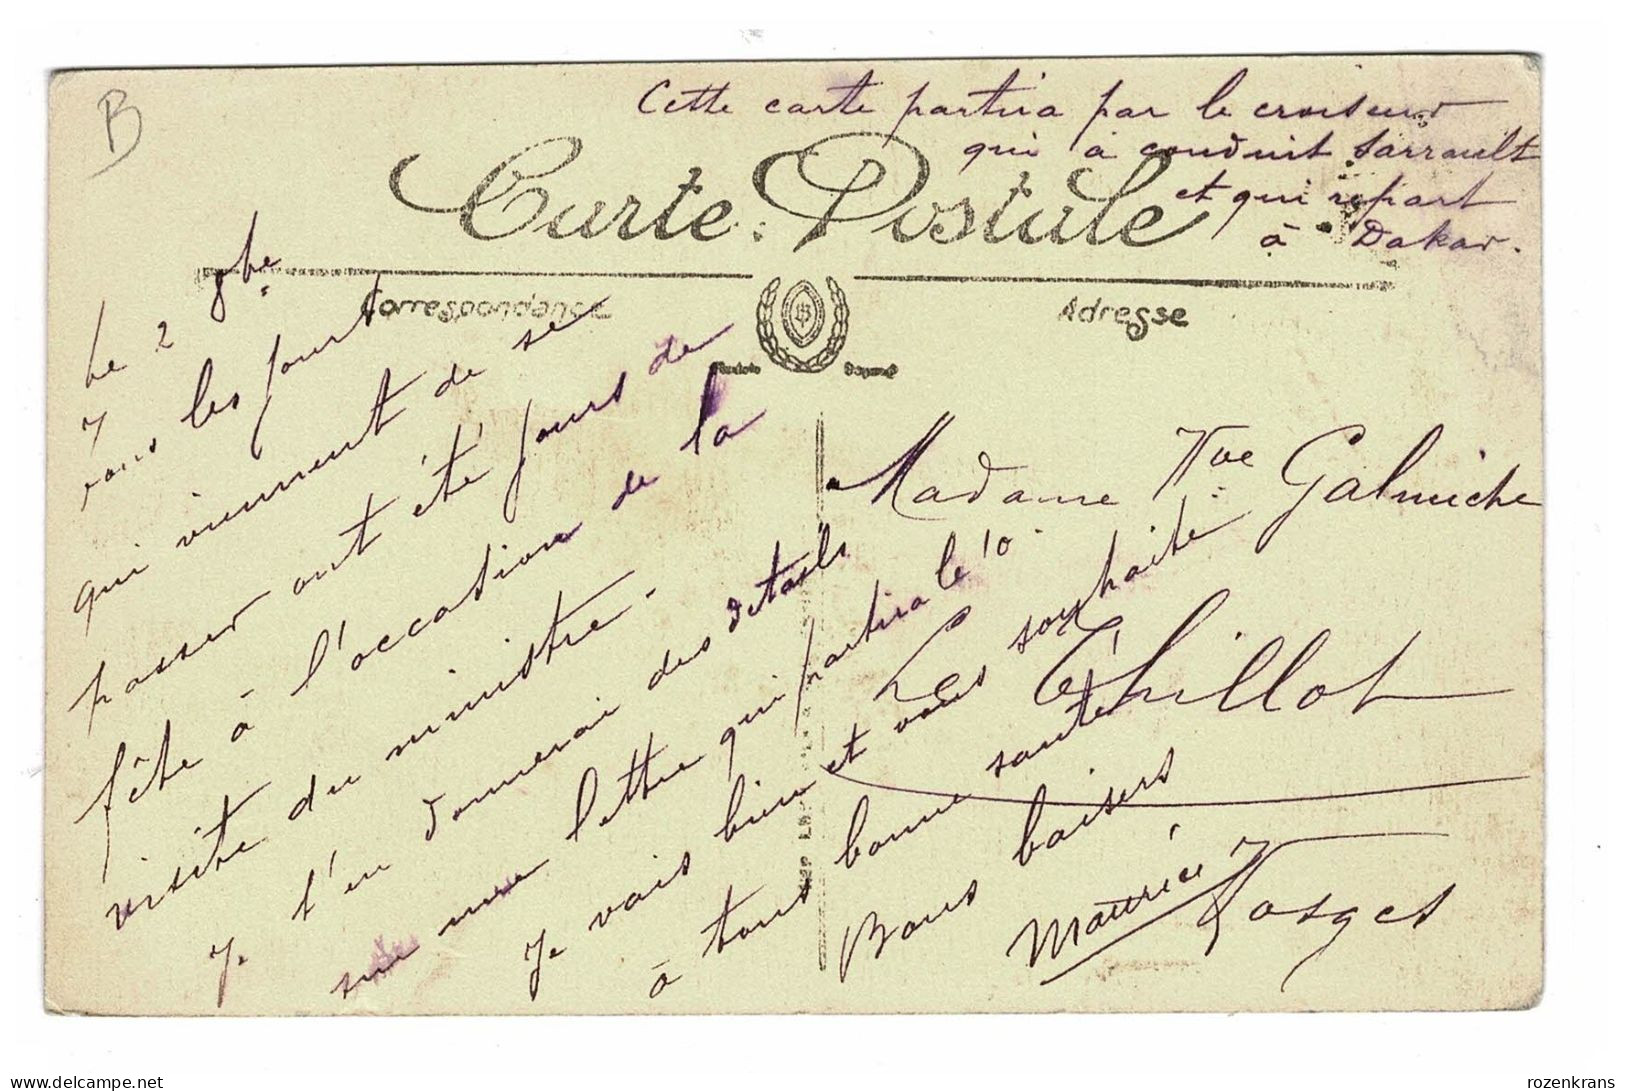 B
Cette carte partira par le croiseur
qui à conduit Sarrault
et qui repart
à Dakar.
Carte Postale
Correspondance
Adresse
Le 2 8bre
vous, les jours
qui viennent de se
passer ont été jours de
fête à l'occasion de la
visite du ministre.
Je t'en donnerai des détails
sur une lettre qui partira le 10.
Je vais bien et vous souhaite
à tous bonne santé
Bons baisers
Maurice
Madame Vve Galmiche
Le Thillot
Vosges
rozenkrans